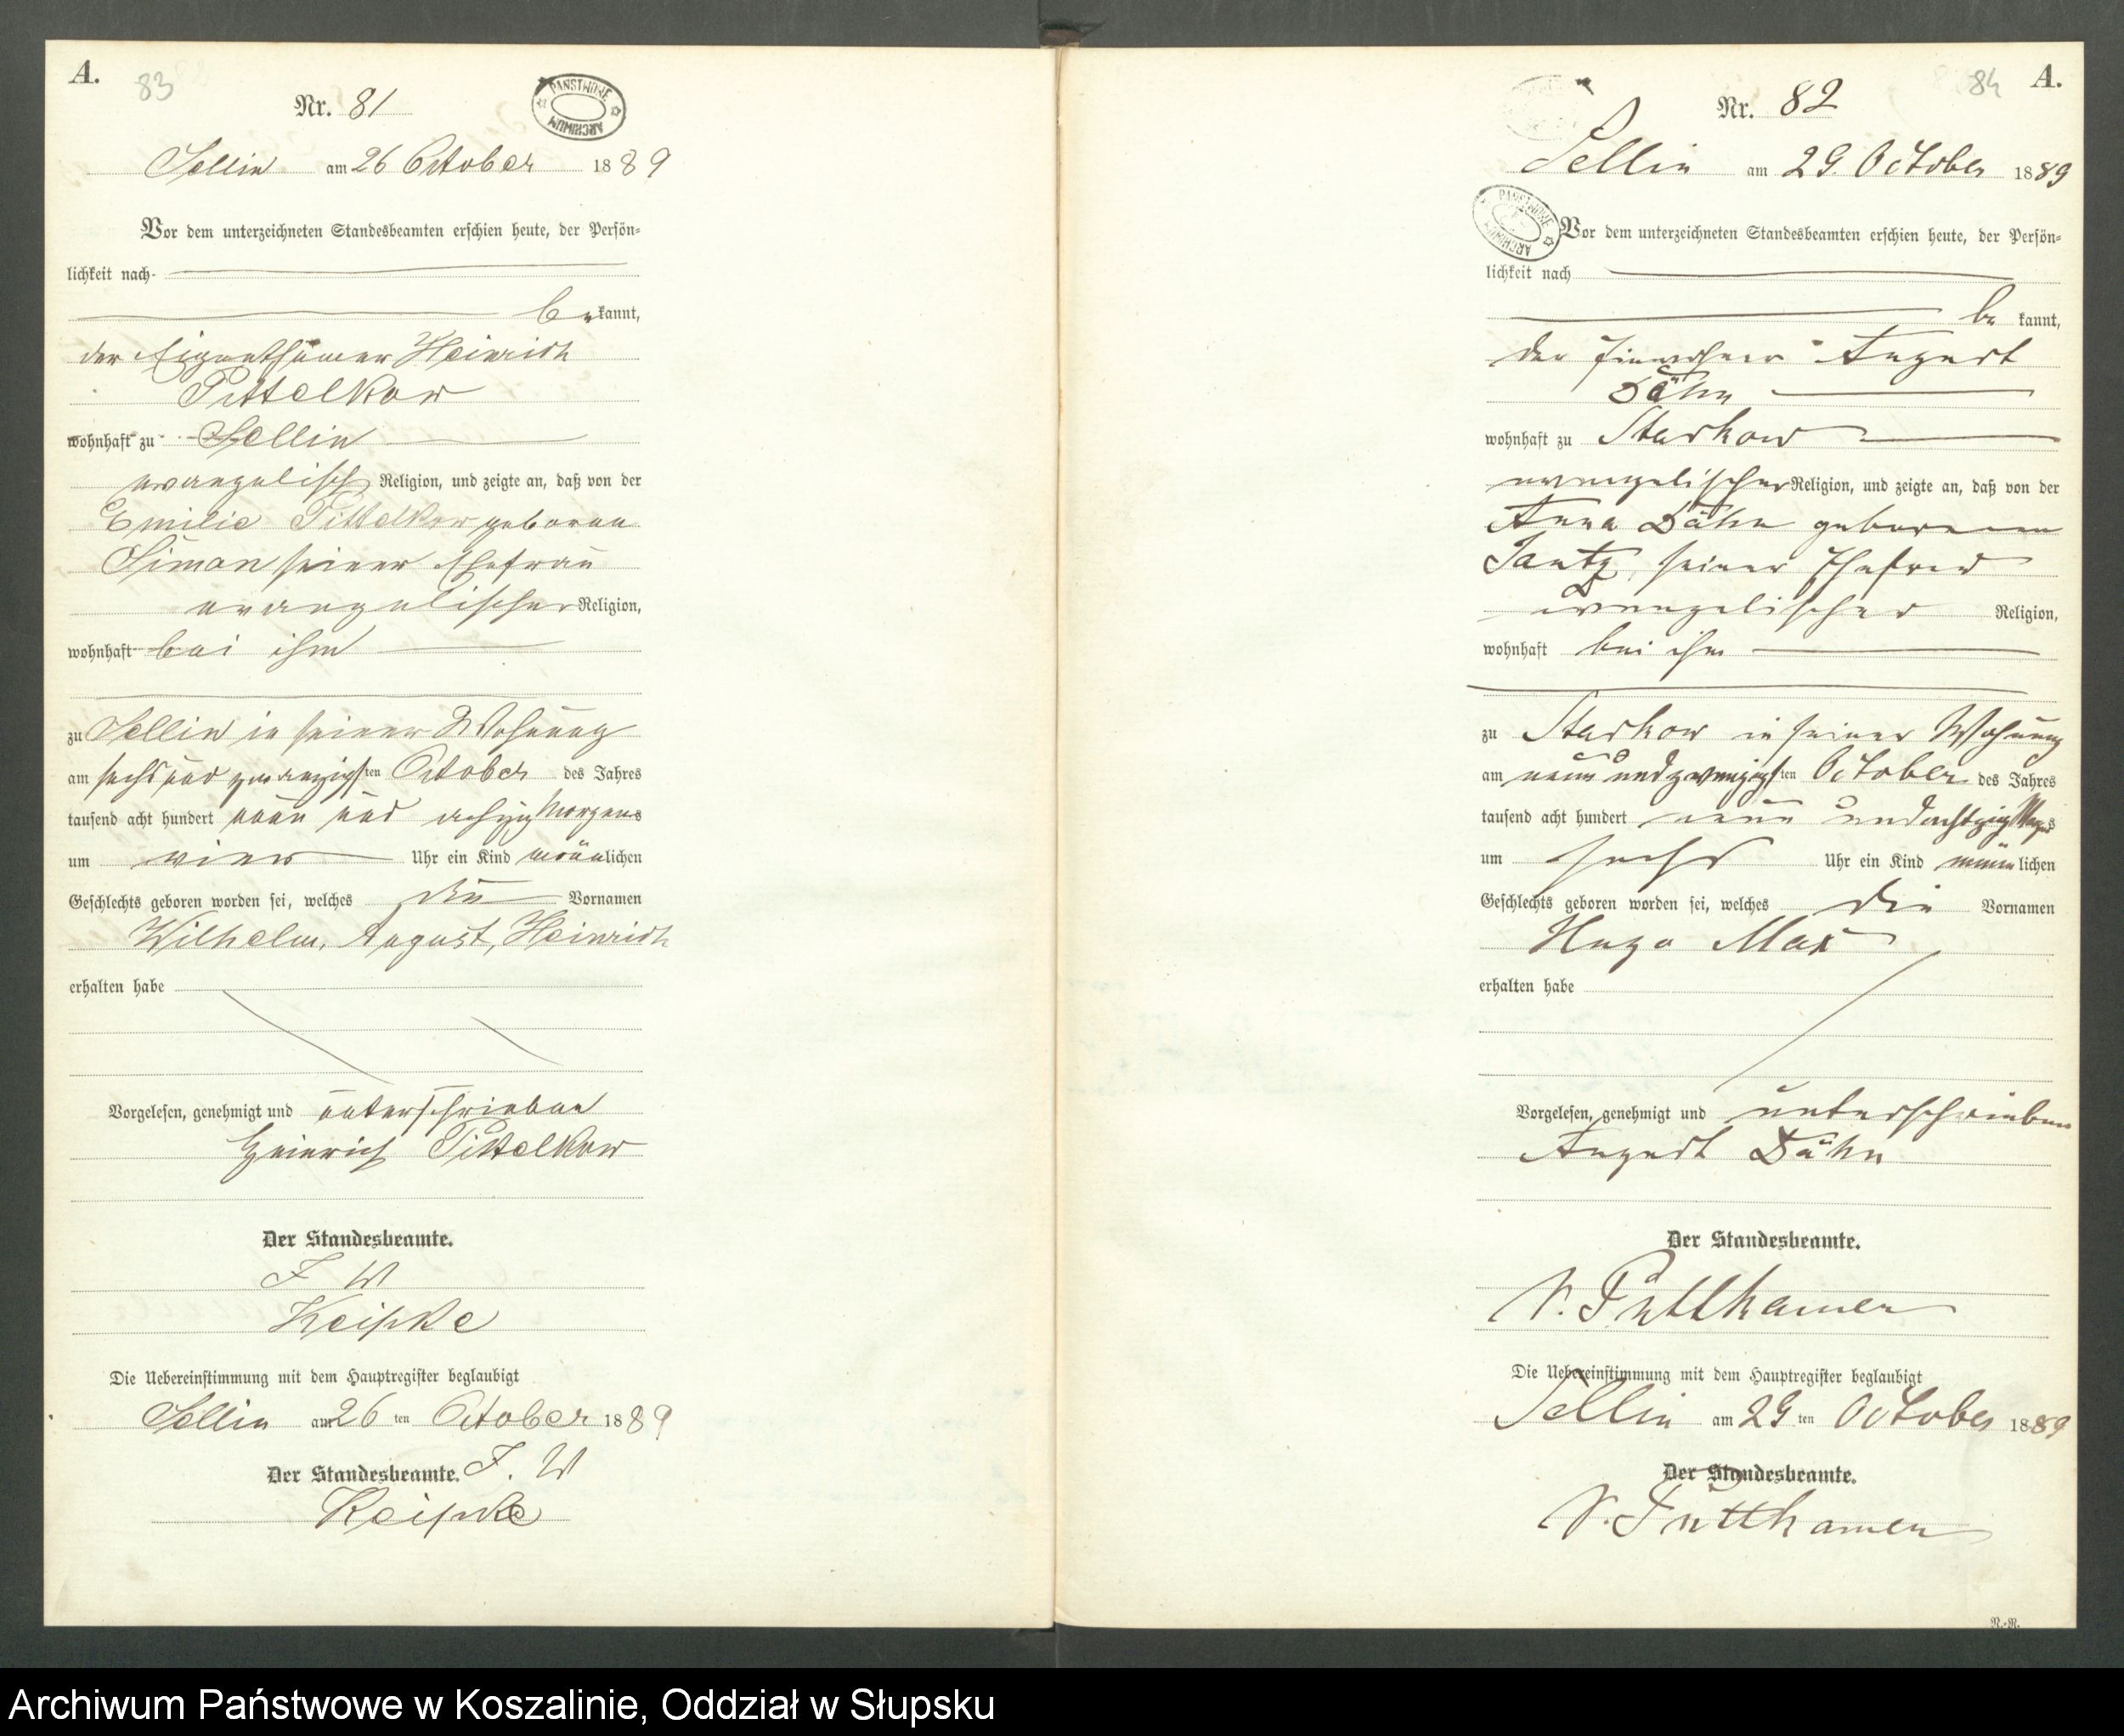 A.
83
Nr. 81
PANSTWOWE ARCHIWUM
Sellin am 26 October 1889
Vor dem unterzeichneten Standesbeamten erschien heute, der Persön-
lichkeit nach
bekannt,
der Eigenthümer Heinrich
Pittelkow
wohnhaft zu Sellin
evangelisch Religion, und zeigte an, daß von der
Emilie Pittelkow geboren
Siman seiner Ehefrau
evangelischer Religion,
wohnhaft bei ihm
zu Sellin in seiner Wohnung
am sechs und zwanzigsten October des Jahres
tausend acht hundert neun und achtzig Morgens
um vier Uhr ein Kind männlichen
Geschlechts geboren worden sei, welches die Vornamen
Wilhelm, August, Heinrich
erhalten habe
Vorgelesen, genehmigt und unterschrieben
Heinrich Pittelkow
Der Standesbeamte.
I W
Keipke
Die Uebereinstimmung mit dem Hauptregister beglaubigt
Sellin am 26 ten October 1889
Der Standesbeamte. I. W
Keipke
84
A.
Nr. 82
Sellin am 29. October 1889
PANSTWOWE ARCHIWUM
Vor dem unterzeichneten Standesbeamten erschien heute, der Persön-
lichkeit nach
be kannt,
der Einwohner August
Dähn
wohnhaft zu Starkow
evangelischer Religion, und zeigte an, daß von der
Anna Dähn geborenen
Jantz, seiner Ehefrau
evangelischer Religion,
wohnhaft bei ihm
zu Starkow in seiner Wohnung
am neun und zwanzigsten October des Jahres
tausend acht hundert neun und achtzig Morgens
um sechs Uhr ein Kind männlichen
Geschlechts geboren worden sei, welches die Vornamen
Hugo Max
erhalten habe
Vorgelesen, genehmigt und unterschrieben
August Dähn
Der Standesbeamte.
v. Puttkamer
Die Uebereinstimmung mit dem Hauptregister beglaubigt
Sellin am 29 ten October 1889
Der Standesbeamte.
v. Puttkamer
N.-R.
Archiwum Państwowe w Koszalinie, Oddział w Słupsku